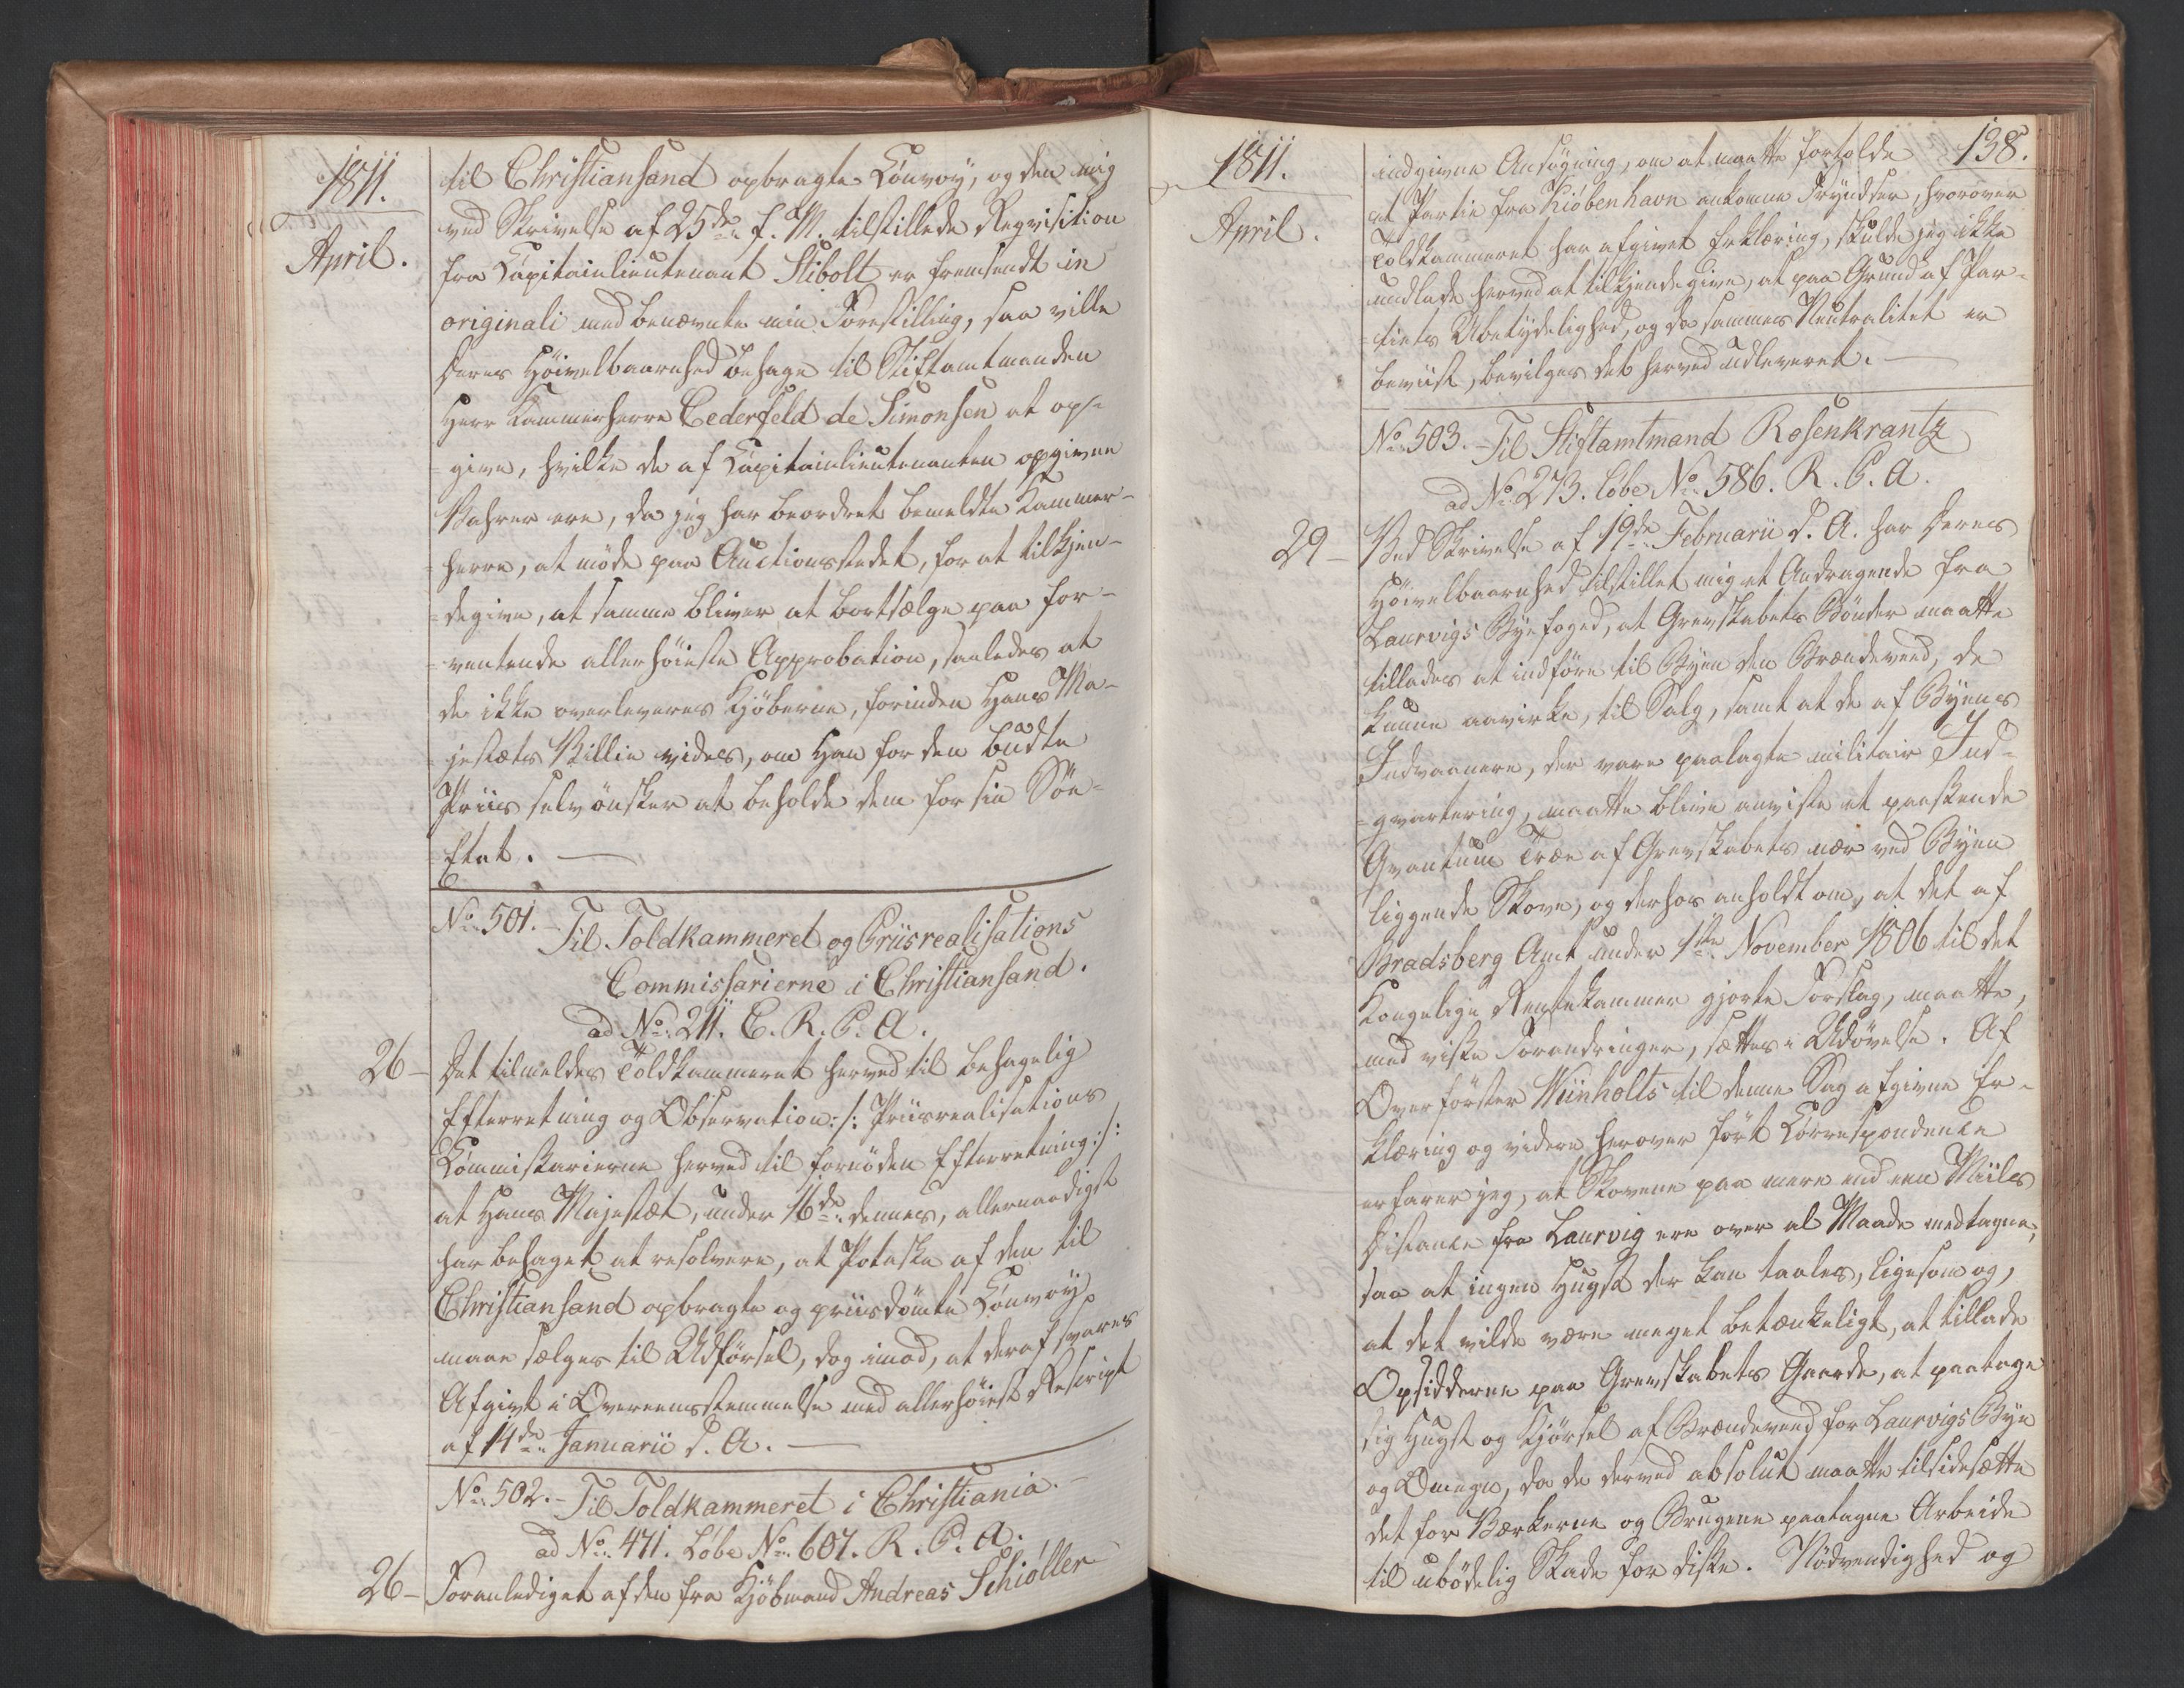 1811.
April.
til Christiansand opbragte Convoy, og den mig
ved Skrivelse af 25de f. M. tilstillede Reqvisition
fra Capitainlieutenant Stibolt er fremsendt in
originali med benævnte min Forestilling, saa ville
Deres Höivelbaarenhed behage til Stiftamtmanden
Herr Kammerherre Cederfeld de Simonsen at op-
=give, hvilke de af Capitainlieutenanten opgivne
Vahrer ere, da jeg har beordret bemeldte Kammer-
=herre, at möde paa Auctionsstedet, for at tilkjen-
=degive, at samme bliver at bortsælge paa for-
=ventende allerhöieste Approbation, saaledes at
de ikke overleveres Kjöberne, forinden Hans Ma-
=jestæts Villie vides, om Han for den budte
Priis selv önsker at beholde dem for sin Söe-
=Etat. —
No. 501. Til Toldkammeret og Priisrealisations
Commissarierne i Christiansand.
ad No. 211. C. R. P. A.
26 - Det tilmeldes Toldkammeret herved til behagelig
Efterretning og Observation :/: Priisrealisations
Commissarierne herved til fornöden Efterretning :/:
at Hans Majestæt, under 16de dennes, allernaadigst
har behaget at resolvere, at Potaske af den til
Christiansand opbragte og priisdömte Convoy,
maae sælges til Udförsel, dog imod, at deraf svares
Afgivt i Overeensstemmelse med allerhöieste Rescript
af 14de Januarii d. A. —
No. 502. - Til Toldkammeret i Christiania. -
ad No. 471. Löbe No. 607. R. P. A.
26 - Foranlediget af den fra Kjöbmand Andreas Schiöller
1811.
April.
138.
indgivne Ansögning, om at maatte fortolde
et Partie fra Kiöbenhavn ankomne Tryndser, hvorover
Toldkammeret har afgivet Erklæring, skulde jeg ikke
undlade herved at tilkjendegive, at paa Grund af Par-
=tiets Ubetydelighed, og da sammes Neutralitet er
beviist, bevilges det herved udleveret. —
No. 503. - Til Stiftamtmand Rosenkrantz
ad No. 273. Löbe No. 586. R. P. A.
29 - Ved Skrivelse af 19de Februarii d. A. har Deres
Höivelbaarenhed tilstillet mig et Andragende fra
Laurvigs Byefoged, at Grevskabets Bönder maatte
tillades at indföre til Byen den Brændeveed, de
kunne avirke, til Salg, samt at de af Byens
Indvaanere, der vare paalagte militair Ind-
=qvartering, maatte blive anviste et passende
Qvantum Træe af Grevskabets nær ved Byen
liggende Skove, og derhos anholdt om, at det af
Bradsberg Amt under 1ste November 1806 til det
Kongelige Rentekammer gjorte Forslag, maatte,
med visse Forandringer, sættes i Udövelse. Af
Overförster Wiinholts til denne Sag afgivne Er-
klæring og videre herover fört Correspondence
erfarer jeg, at Skovene paa mere end een Miils
Distance fra Laurvig ere over al Maade medtagne,
saa at ingen Hugst der kan taales, ligesom og,
at det vilde være meget betænkeligt, at tillade
Opsidderne paa Grevskabets Gaarde, at paatage
sig Hugst og Kjörsel af Brændeveed for Laurvigs Bye
og Omegn, da de derved absolut maatte tilsidesætte
det for Værkerne og Brugene paatagne Arbeide
til ubödelig Skade for disse. Nödvendighed og